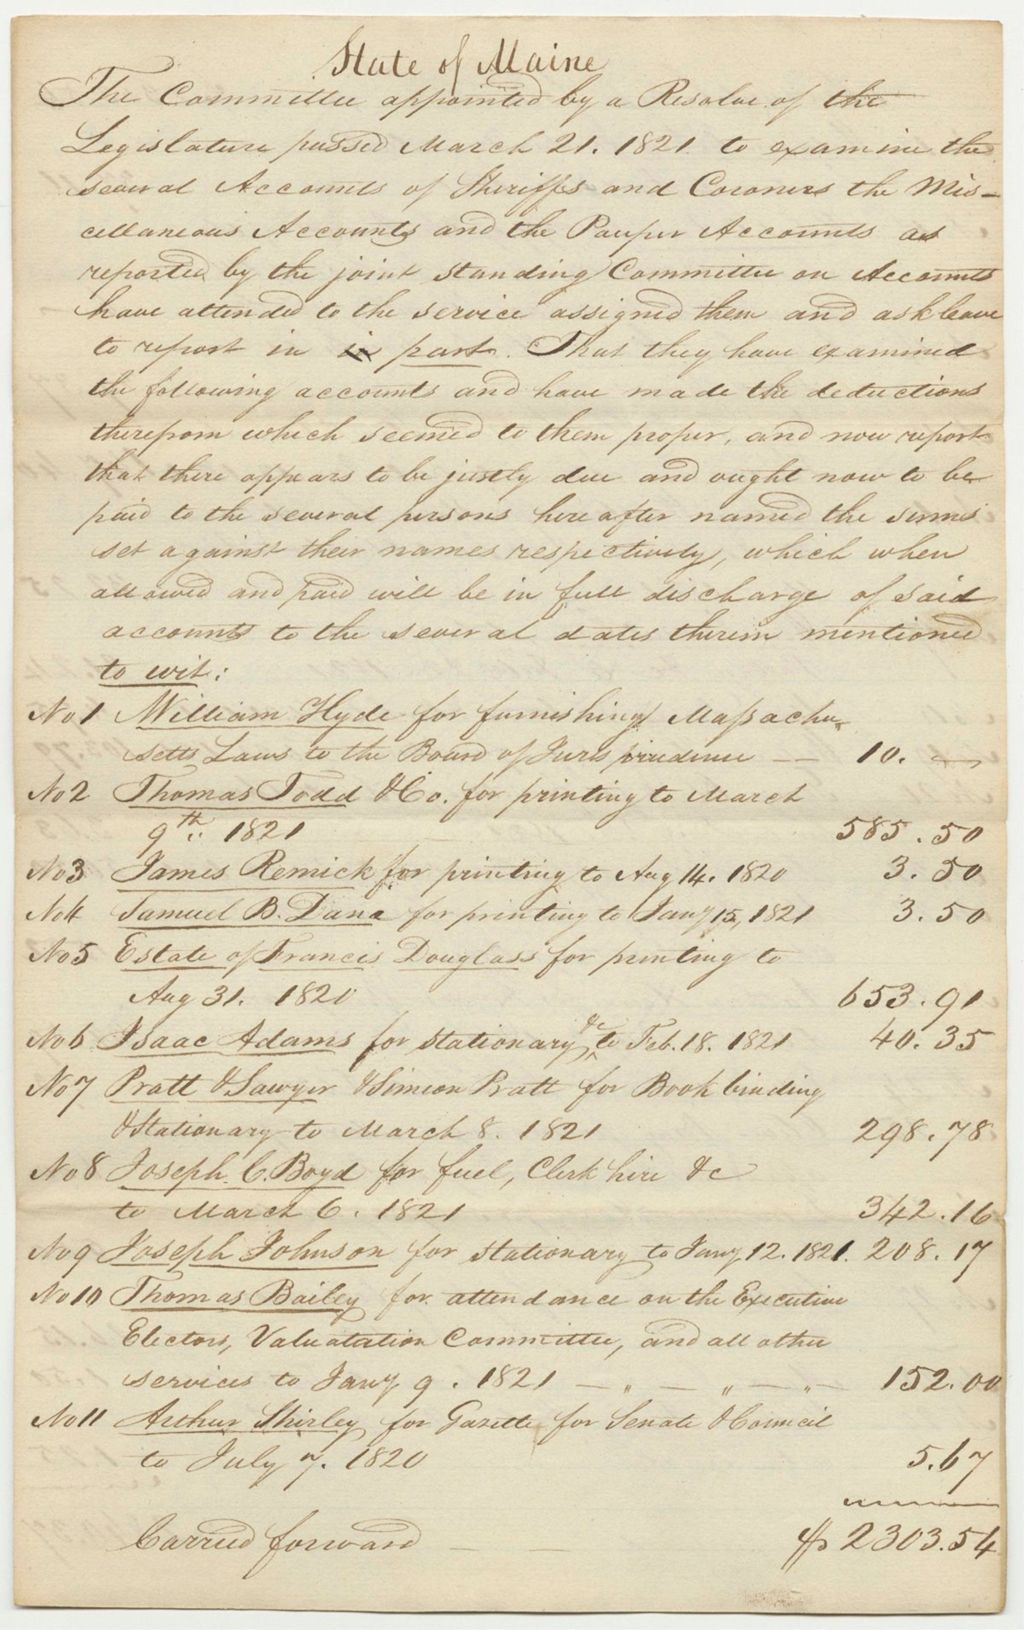 State of Maine
The Committee appointed by a Resolve of the
Legislature passed March 21. 1821 to examine the
several Accounts of Sheriffs and Coroners the Mis-
cellaneous Accounts and the Pauper Accounts as
reported by the joint standing Committee on Accounts
have attended to the service assigned them and ask leave
to report in in part. That they have examined
the following accounts and have made the deductions
therefrom which seemed to them proper, and now report
that there appears to be justly due and ought now to be
paid to the several persons hereafter named the sums
set against their names respectively, which when
allowed and paid will be in full discharge of said
accounts to the several dates therein mentioned
to wit:
No 1 William Hyde for furnishing Massachu-
setts Laws to the Board of Jurisprudence — 10. —
No 2 Thomas Todd & Co. for printing to March
9th 1821 585.50
No 3 James Remick for printing to Aug 14. 1820 3.50
No 4 Samuel B. Dana for printing to Jany 15, 1821 3.50
No 5 Estate of Francis Douglass for printing to
Aug 31. 1820 653.91
No 6 Isaac Adams for stationary &c to Feb. 18. 1821 40.35
No 7 Pratt & Sawyer & Simeon Pratt for Book binding
& Stationary to March 8. 1821 298.78
No 8 Joseph C. Boyd for fuel, Clerk hire &c
to March 6. 1821 342.16
No 9 Joseph Johnson for stationary to Jany 12. 1821. 208.17
No 10 Thomas Bailey for attendance on the Executive
Electors, Valuatation Committee, and all other
services to Jany 9. 1821 — " — " — " — 152.00
No 11 Arthur Shirley for Gazette for Senate & Council
to July 7. 1820 5.67
Carried forward — $2303.54